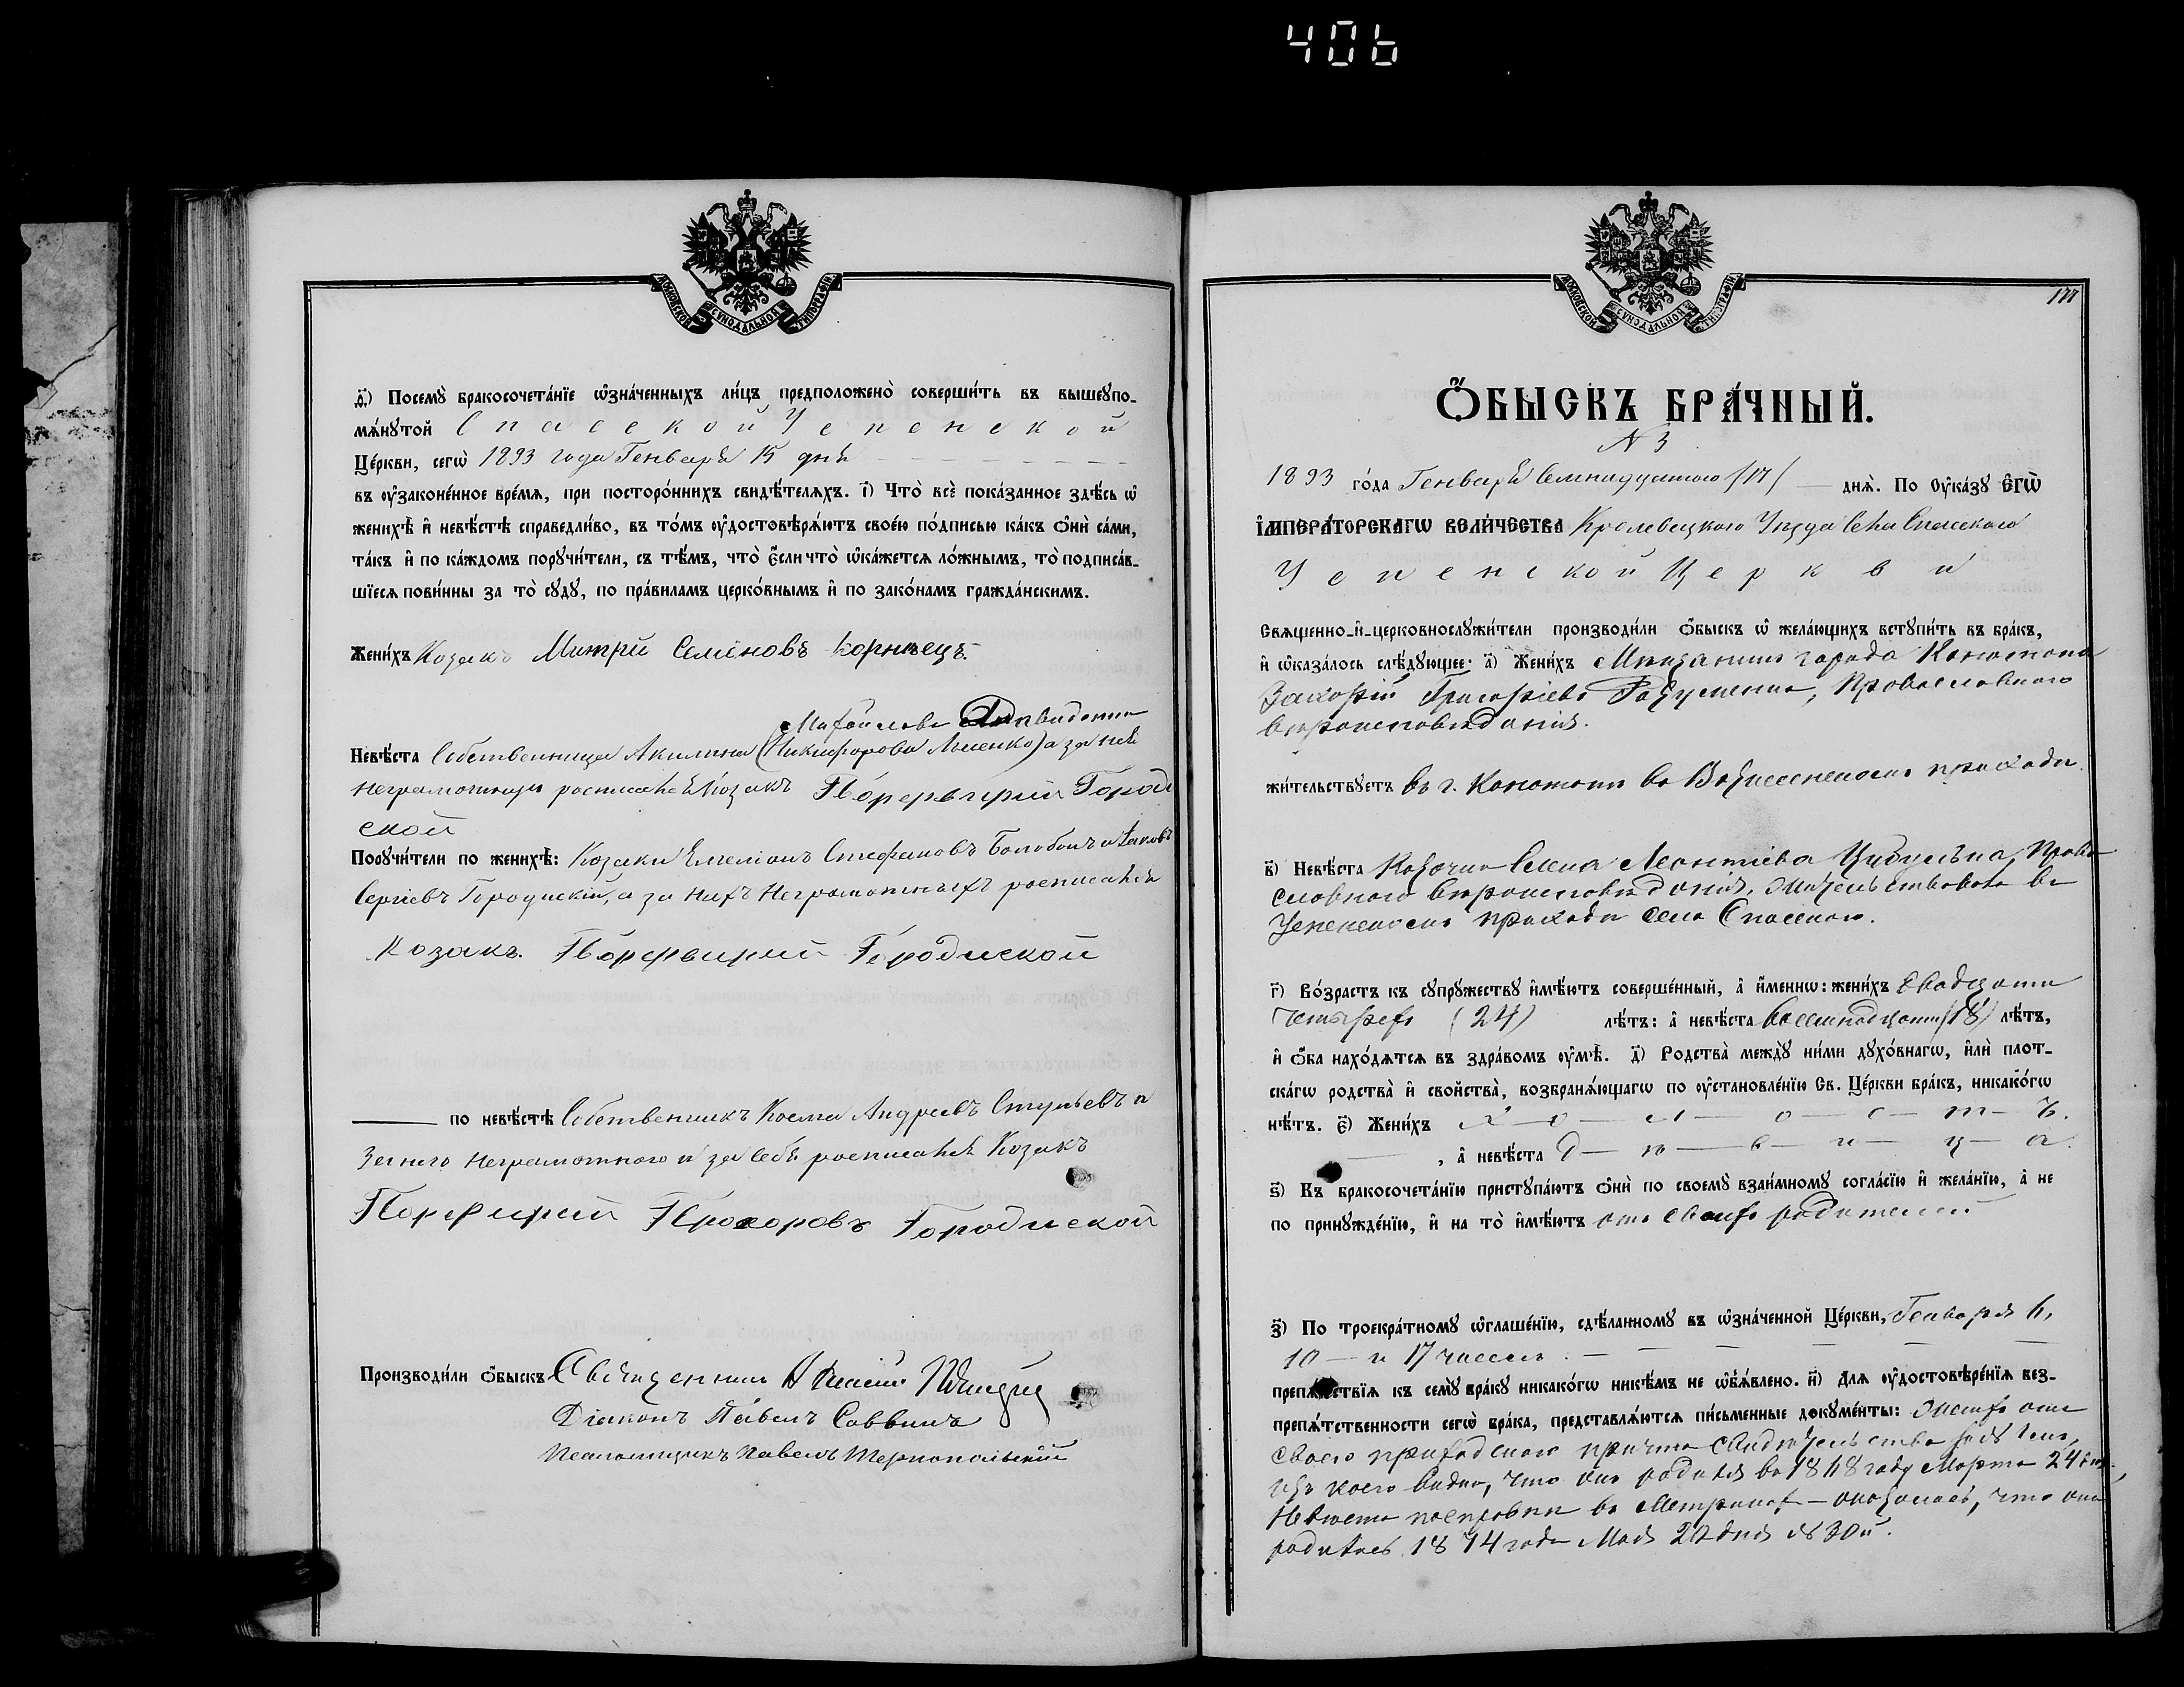 406
МОСКОВСКОЙ СѴНОДАЛЬНОЙ ТИПОГРАФІИ
ѳ҃) Посемꙋ̀ бракосочета́нїе ѡ҆зна́ченныхъ ли́цъ предположено̀ соверши́ть въ вышеꙋпо-
мѧ́нꙋтой Спасской Успенской
Це́ркви, сегѡ̀ 1893 года Генваря 15 дня
въ ᲂу҆законе́нное вре́мѧ, при посторо́ннихъ свидѣ́телѧхъ. і҃) Что̀ всѐ пока́занное здѣ́сь ѡ҆
женихѣ̀ и҆ невѣ́стѣ справедли́во, въ то́мъ ᲂу҆достовѣрѧ́ютъ свое́ю по́дписью ка́къ ѻ҆нѝ са́ми,
та́къ и҆ по ка́ждомъ порꙋчи́тели, съ тѣ́мъ, что̀ є҆́сли что̀ ѡ҆ка́жетсѧ ло́жнымъ, то̀ подписа́в-
шїесѧ пови́нны за то̀ сꙋдꙋ̀, по пра́виламъ церко́внымъ и҆ по зако́намъ гражда́нскимъ.
Жени́хъ Козакъ Митрій Семеновъ Корнѣецъ.
Невѣ́ста Собственница Акилина (Никифорова Лысенко) а за неё
неграмотную росписался Козакъ Порфирий Городи
ской
Порꙋчи́тели по женихѣ̀: Козаки Емеліанъ Стефановъ Болобонъ и Іаковъ
Сергіевъ Городискій, а за нихъ неграмотныхъ росписался
Козакъ. Порфирий Городиской
по невѣ́стѣ Собственникъ Косма Андреевъ Ступьевъ а
за него неграмотного и за себя росписался Козакъ
Порфирий Прохоровъ Городиской
Производи́ли ѻ҆́быскъ Священникъ
Діаконъ Павелъ Саввичъ
Псаломщикъ Павелъ Тернопольскій
МОСКОВСКОЙ СѴНОДАЛЬНОЙ ТИПОГРАФІИ
177
Ѻ҆́БЫСКЪ БРА́ЧНЫЙ.
N 3
1893 го́да Генваря Семнадцатого /17/ днѧ̀. По Оу҆ка́зꙋ Є҆ГѠ̀
І҆МПЕРА́ТОРСКАГѠ ВЕЛИ́ЧЕСТВА Кролевецкого Уезда Села Спасского
Успенской Церкви
Свѧщенно-и҆-церковнослꙋжи́тели производи́ли ѻ҆́быскъ ѡ҆ жела́ющихъ встꙋпи́ть въ бра́къ,
и҆ ѡ҆каза́лось слѣ́дꙋющее: а҃) Жени́хъ Мѣщанинъ города Конотопа
Захорій Григоріевъ Разуменко, Православного
вѣроисповѣданія.
жи́тельствꙋетъ въ г. Конотопѣ въ Вознесенскомъ приходѣ.
в҃) Невѣ́ста Козачка Елена Леонтіева Цибулька, Право
славного вѣроисповѣданія, жительствовала въ
Успенскомъ приходѣ села Спасскаго.
г҃) Во́зрастъ къ сꙋпрꙋ́жествꙋ и҆мѣ́ютъ соверше́нный, а҆ и҆́меннѡ: жени́хъ двадцати
четырехъ (24) лѣ́тъ: а҆ невѣ́ста восемнадцати (18) лѣ́тъ,
и҆ ѻ҆́ба нахо́дѧтсѧ въ здра́вомъ ᲂу҆мѣ̀. д҃) Родства̀ междꙋ̀ ни́ми дꙋхо́внагѡ, и҆лѝ плот-
ска́гѡ родства̀ и҆ свойства̀, возбранѧ́ющагѡ по ᲂу҆становле́нїю Св. Це́ркви бра́къ, никако́гѡ
нѣ́тъ. є҃) Жени́хъ х—о—л—о—с—т—ъ.
, а҆ невѣ́ста д—ѣ—в—и—ц—а.
ѕ҃) Къ бракосочета́нїю пристꙋпа́ютъ ѻ҆нѝ по своемꙋ̀ взаи́мномꙋ согла́сїю и҆ жела́нїю, а҆ не
по принꙋжде́нїю, и҆ на то̀ и҆мѣ́ютъ отъ своихъ родителей
з҃) По троекра́тномꙋ ѡ҆глаше́нїю, сдѣ́ланномꙋ въ ѡ҆зна́ченной Це́ркви, Генваря 6,
10 — и 17 чиселъ
препѧ́тствїѧ къ семꙋ̀ бра́кꙋ никако́гѡ никѣ́мъ не ѡ҆б̾ѧ́влено. и҃) Длѧ̀ ᲂу҆достовѣре́нїѧ без-
препѧ́тственности сегѡ̀ бра́ка, представлѧ́ютсѧ пи́сьменные докꙋме́нты: Женихъ отъ
своего приходского причта свидѣтельство
изъ коего видно, что онъ родился въ 1868 году Марта 24
Невѣста по справки въ Метрикахъ — оказалось, что она
родилась 1874 года Мая 20 дня